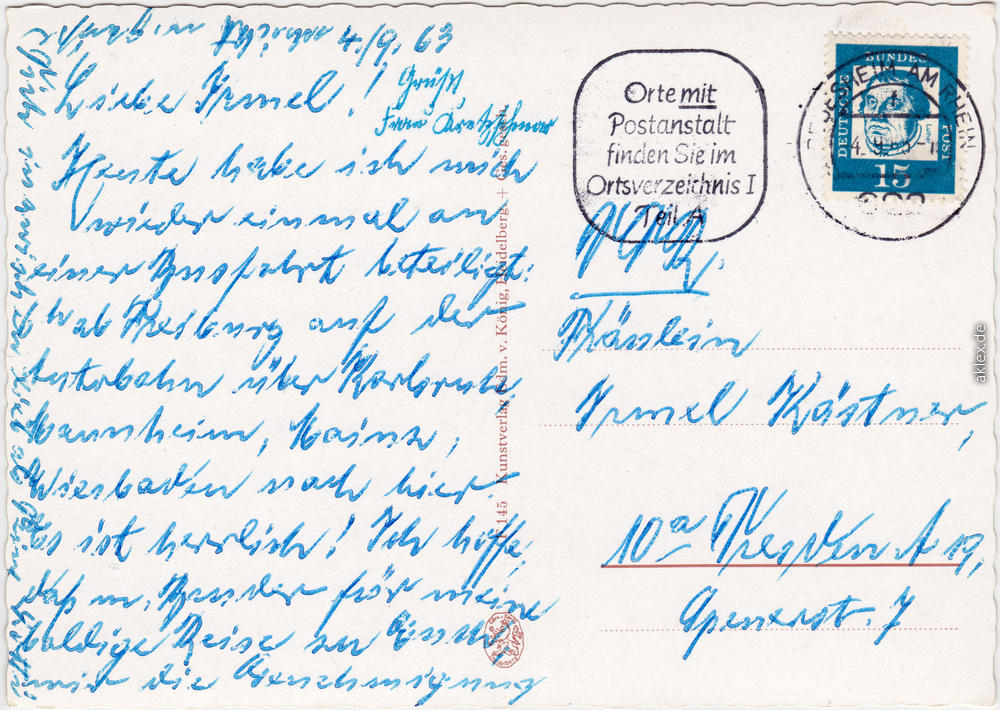 4./9. 63
Liebe Irmel!
Grüßt
Frau Kretzschmar
Heute habe ich mich
wieder einmal an
einer Busfahrt beteiligt:
ab Freiburg auf der
Autobahn über Karlsruhe,
Mannheim, Mainz,
Wiesbaden nach hier.
Es ist herrlich! Ich hoffe,
daß m. Bruder für meine
baldige Reise zu Euch
mir die Genehmigung
Orte mit
Postanstalt
finden Sie im
Ortsverzeichnis I
Teil A
DEUTSCHE BUNDESPOST
15
AM RHEIN
DDR.
Fräulein
Irmel Kästner,
10a Dresden A 19,
7
145 Kunstverlag Edm. v. König, Heidelberg
aklex.de